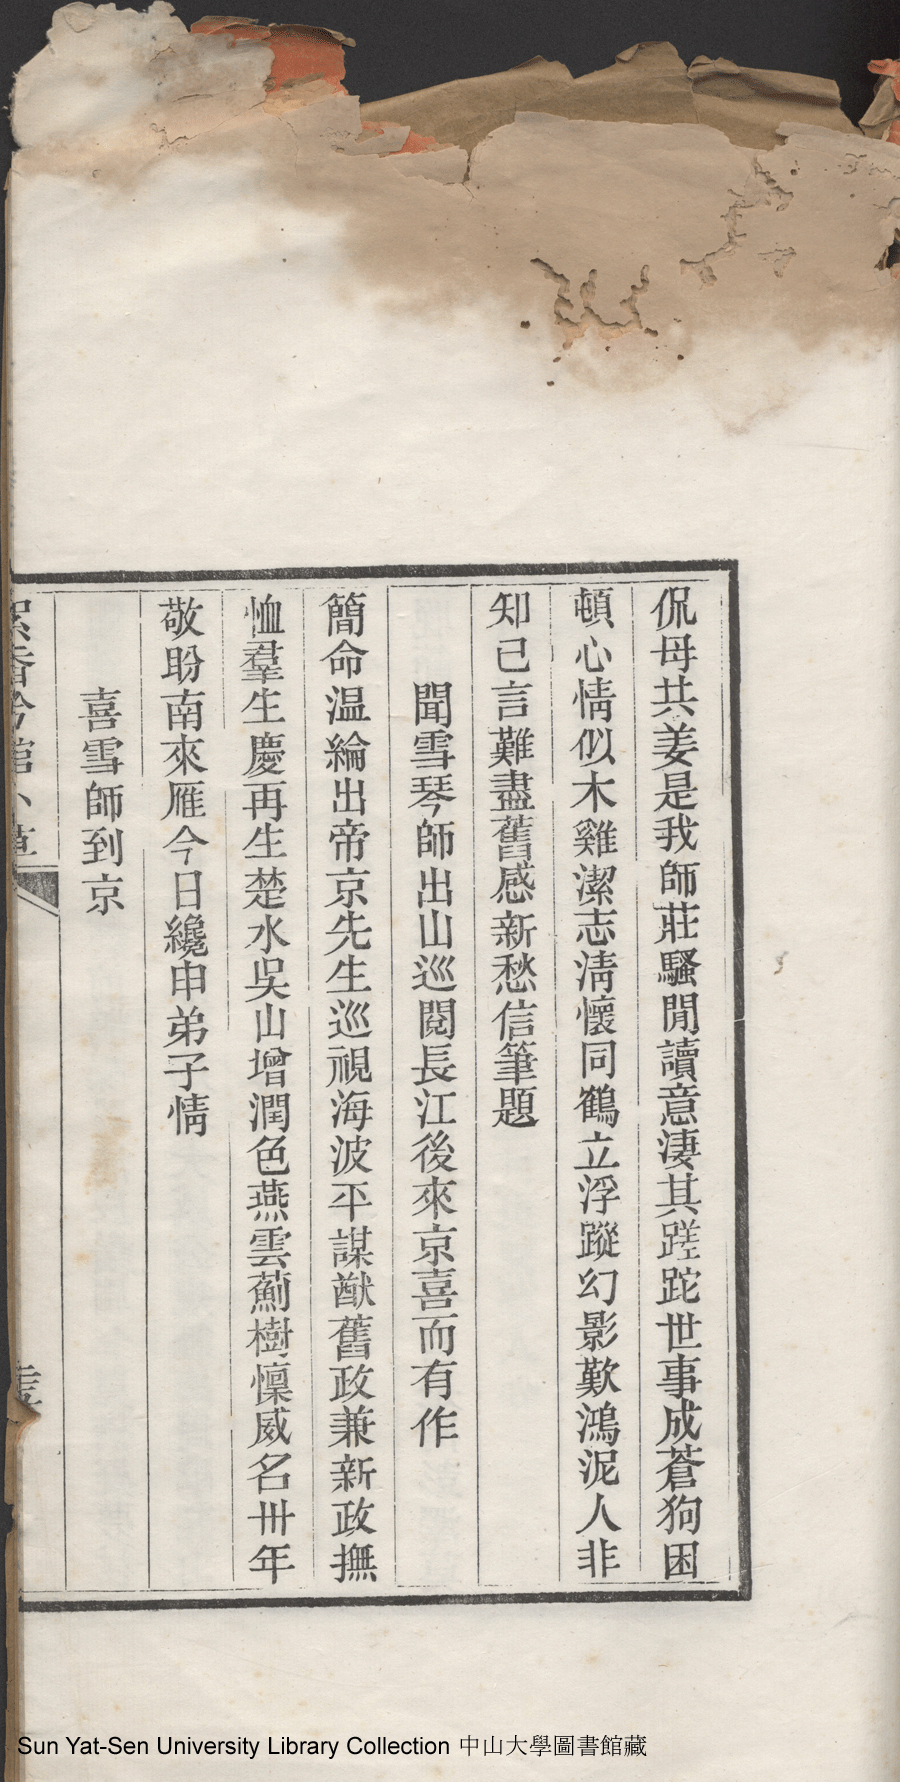 侃母共姜是我師莊騷閒讀意淒其蹉跎世事成蒼狗困
頓心情似木雞潔志清懷同鶴立浮蹤幻影歎鴻泥人非
知己言難盡舊感新愁信筆題
聞雪琴師出山巡閱長江後來京喜而有作
簡命温綸出帝京先生巡視海波平謀猷舊政兼新政撫
恤羣生慶再生楚水吳山增潤色燕雲薊樹懍威名卅年
敬盼南來雁今日纔申弟子情
喜雪師到京
絮香吟館小草
Sun Yat-Sen University Library Collection 中山大學圖書館藏